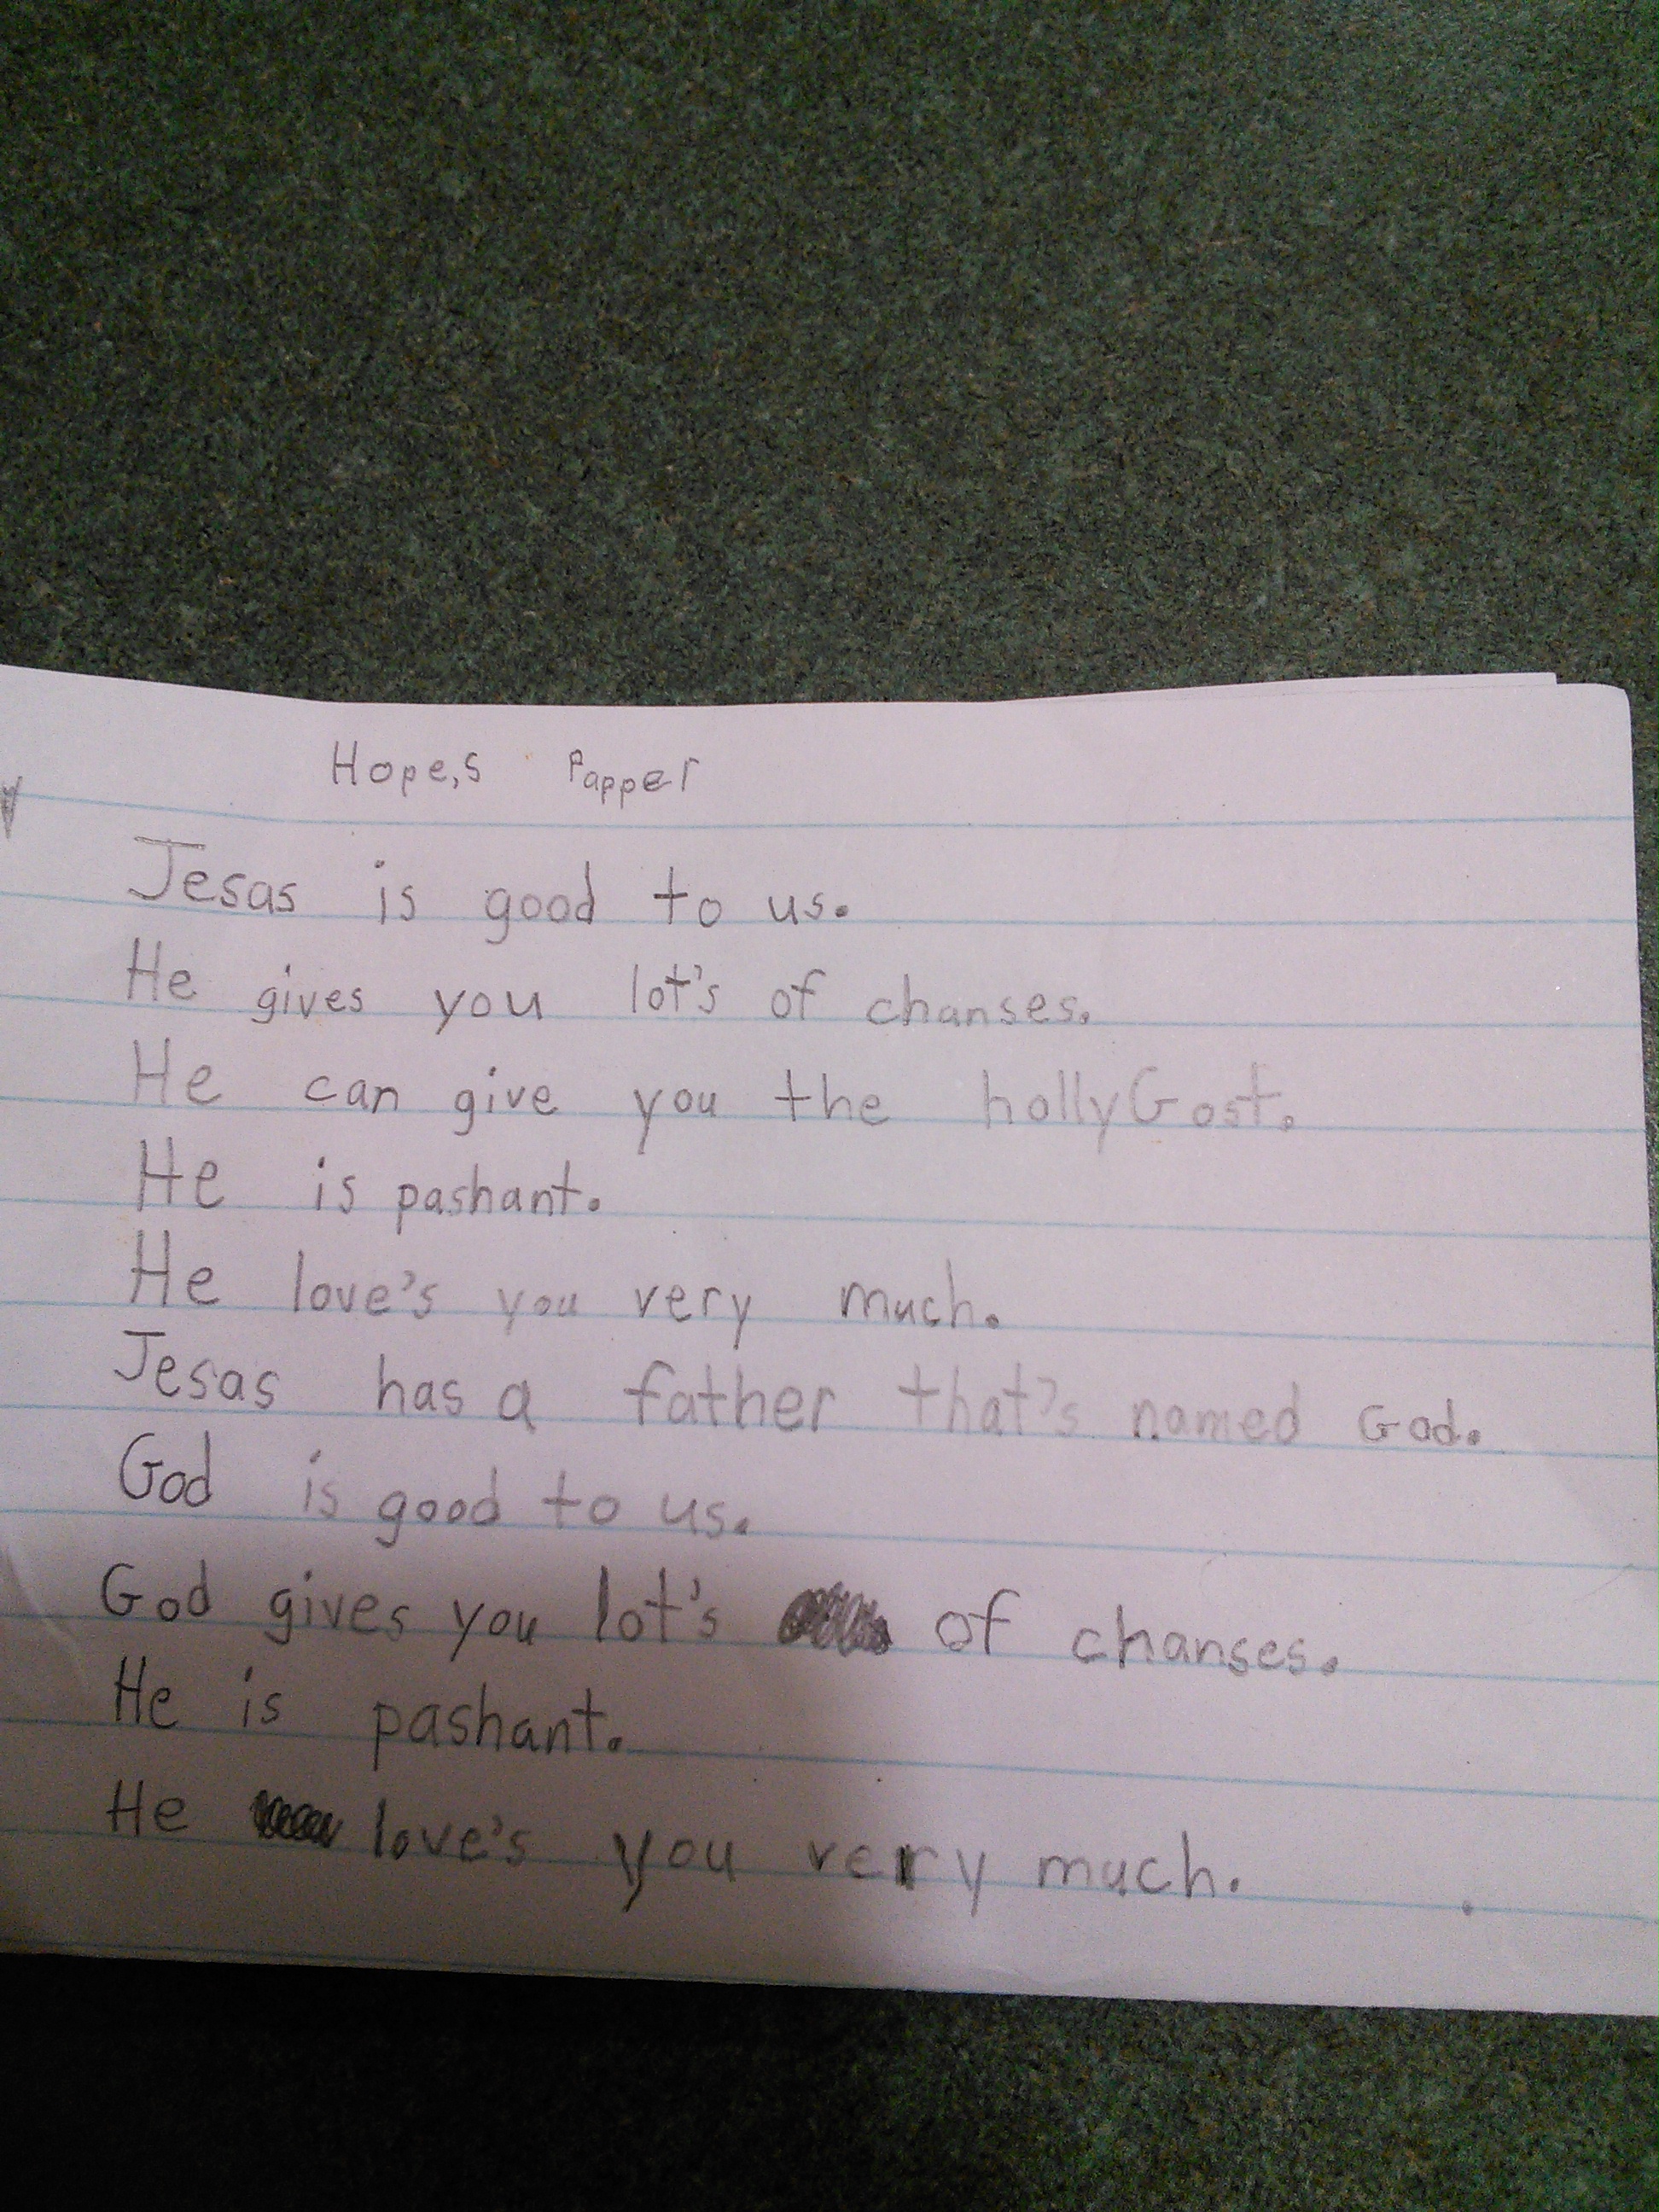 Hope,s Papper
Jesas is good to us.
He gives you lot's of chanses.
He can give you the hollyGost.
He is pashant.
He love's you very much.
Jesas has a father that's named God.
God is good to us.
God gives you lot's of chanses.
He is pashant.
He love's you very much.